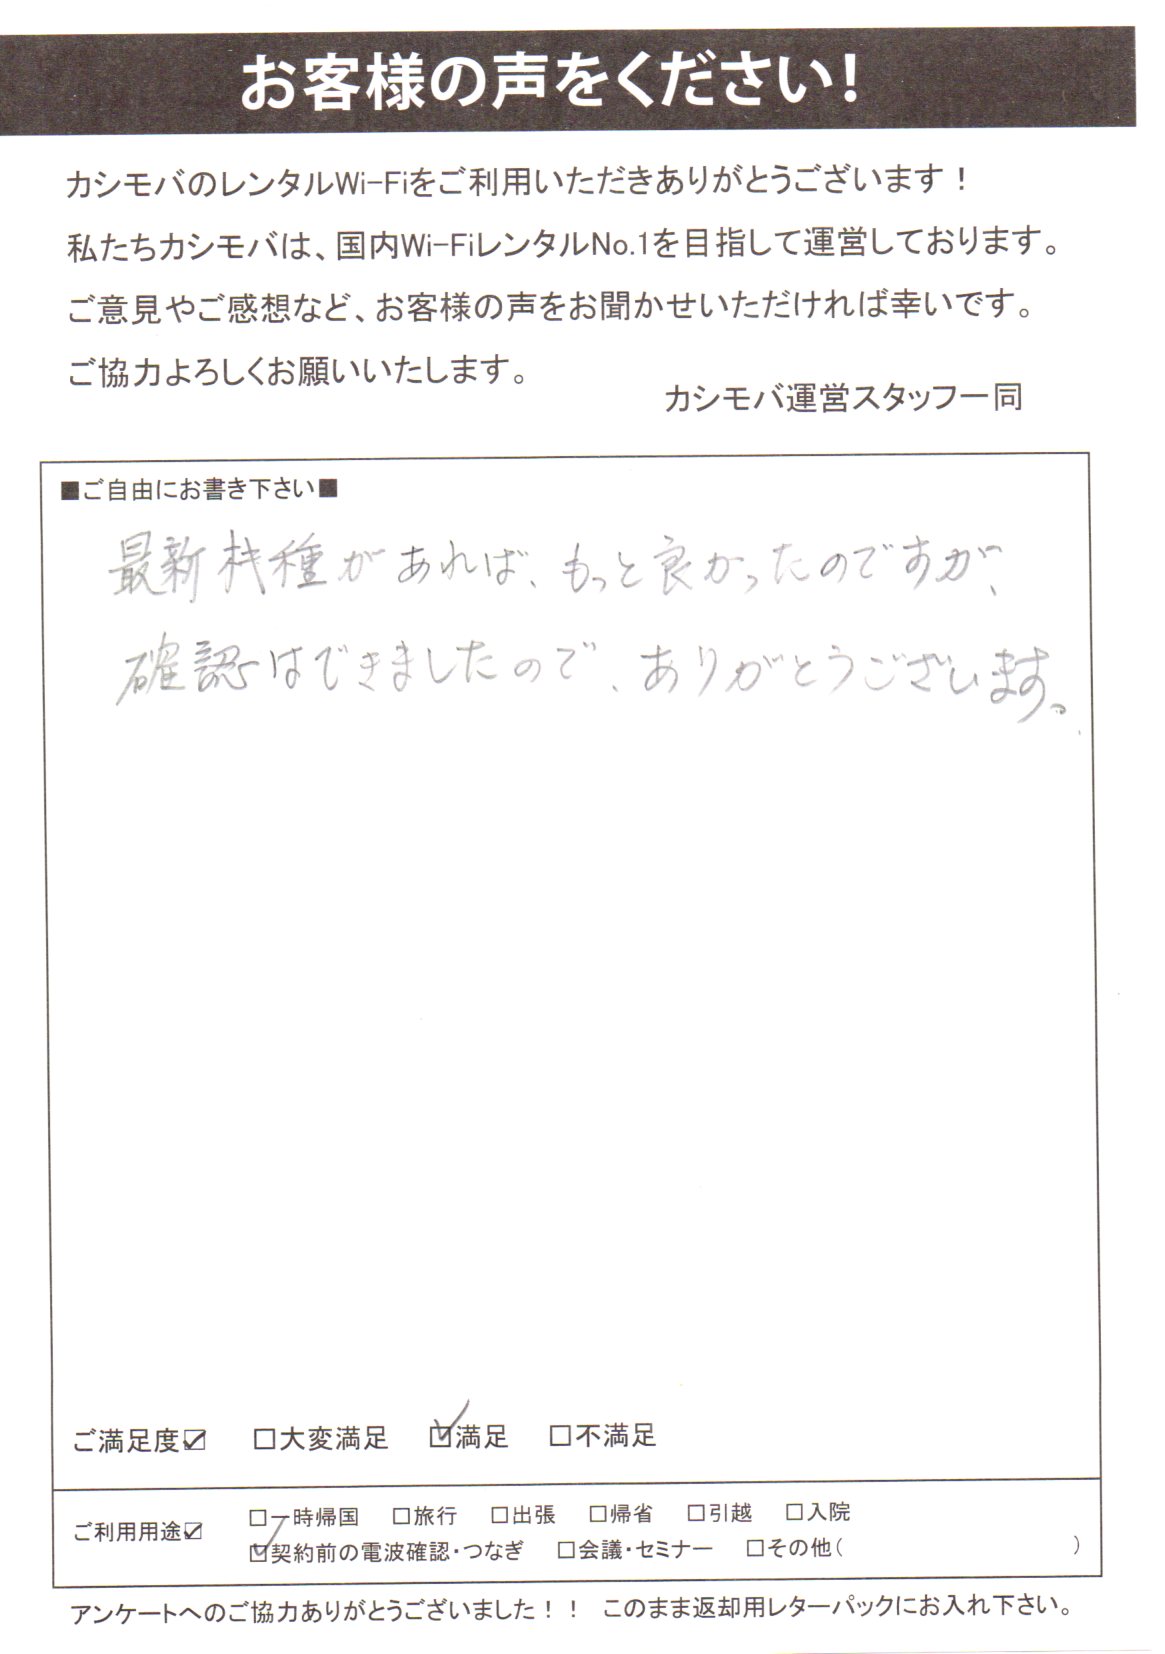 お客様の声をください!
カシモバのレンタルWi-Fiをご利用いただきありがとうございます!
私たちカシモバは、国内Wi-FiレンタルNo.1を目指して運営しております。
ご意見やご感想など、お客様の声をお聞かせいただければ幸いです。
ご協力よろしくお願いいたします。
カシモバ運営スタッフ一同
■ご自由にお書き下さい■
最新機種があれば、もっと良かったのですが、
確認はできましたので、ありがとうございます。
ご満足度☑ □大変満足 ☑満足 □不満足
ご利用用途☑ □一時帰国 □旅行 □出張 □帰省 □引越 □入院
☑契約前の電波確認・つなぎ □会議・セミナー □その他( )
アンケートへのご協力ありがとうございました!! このまま返却用レターパックにお入れ下さい。